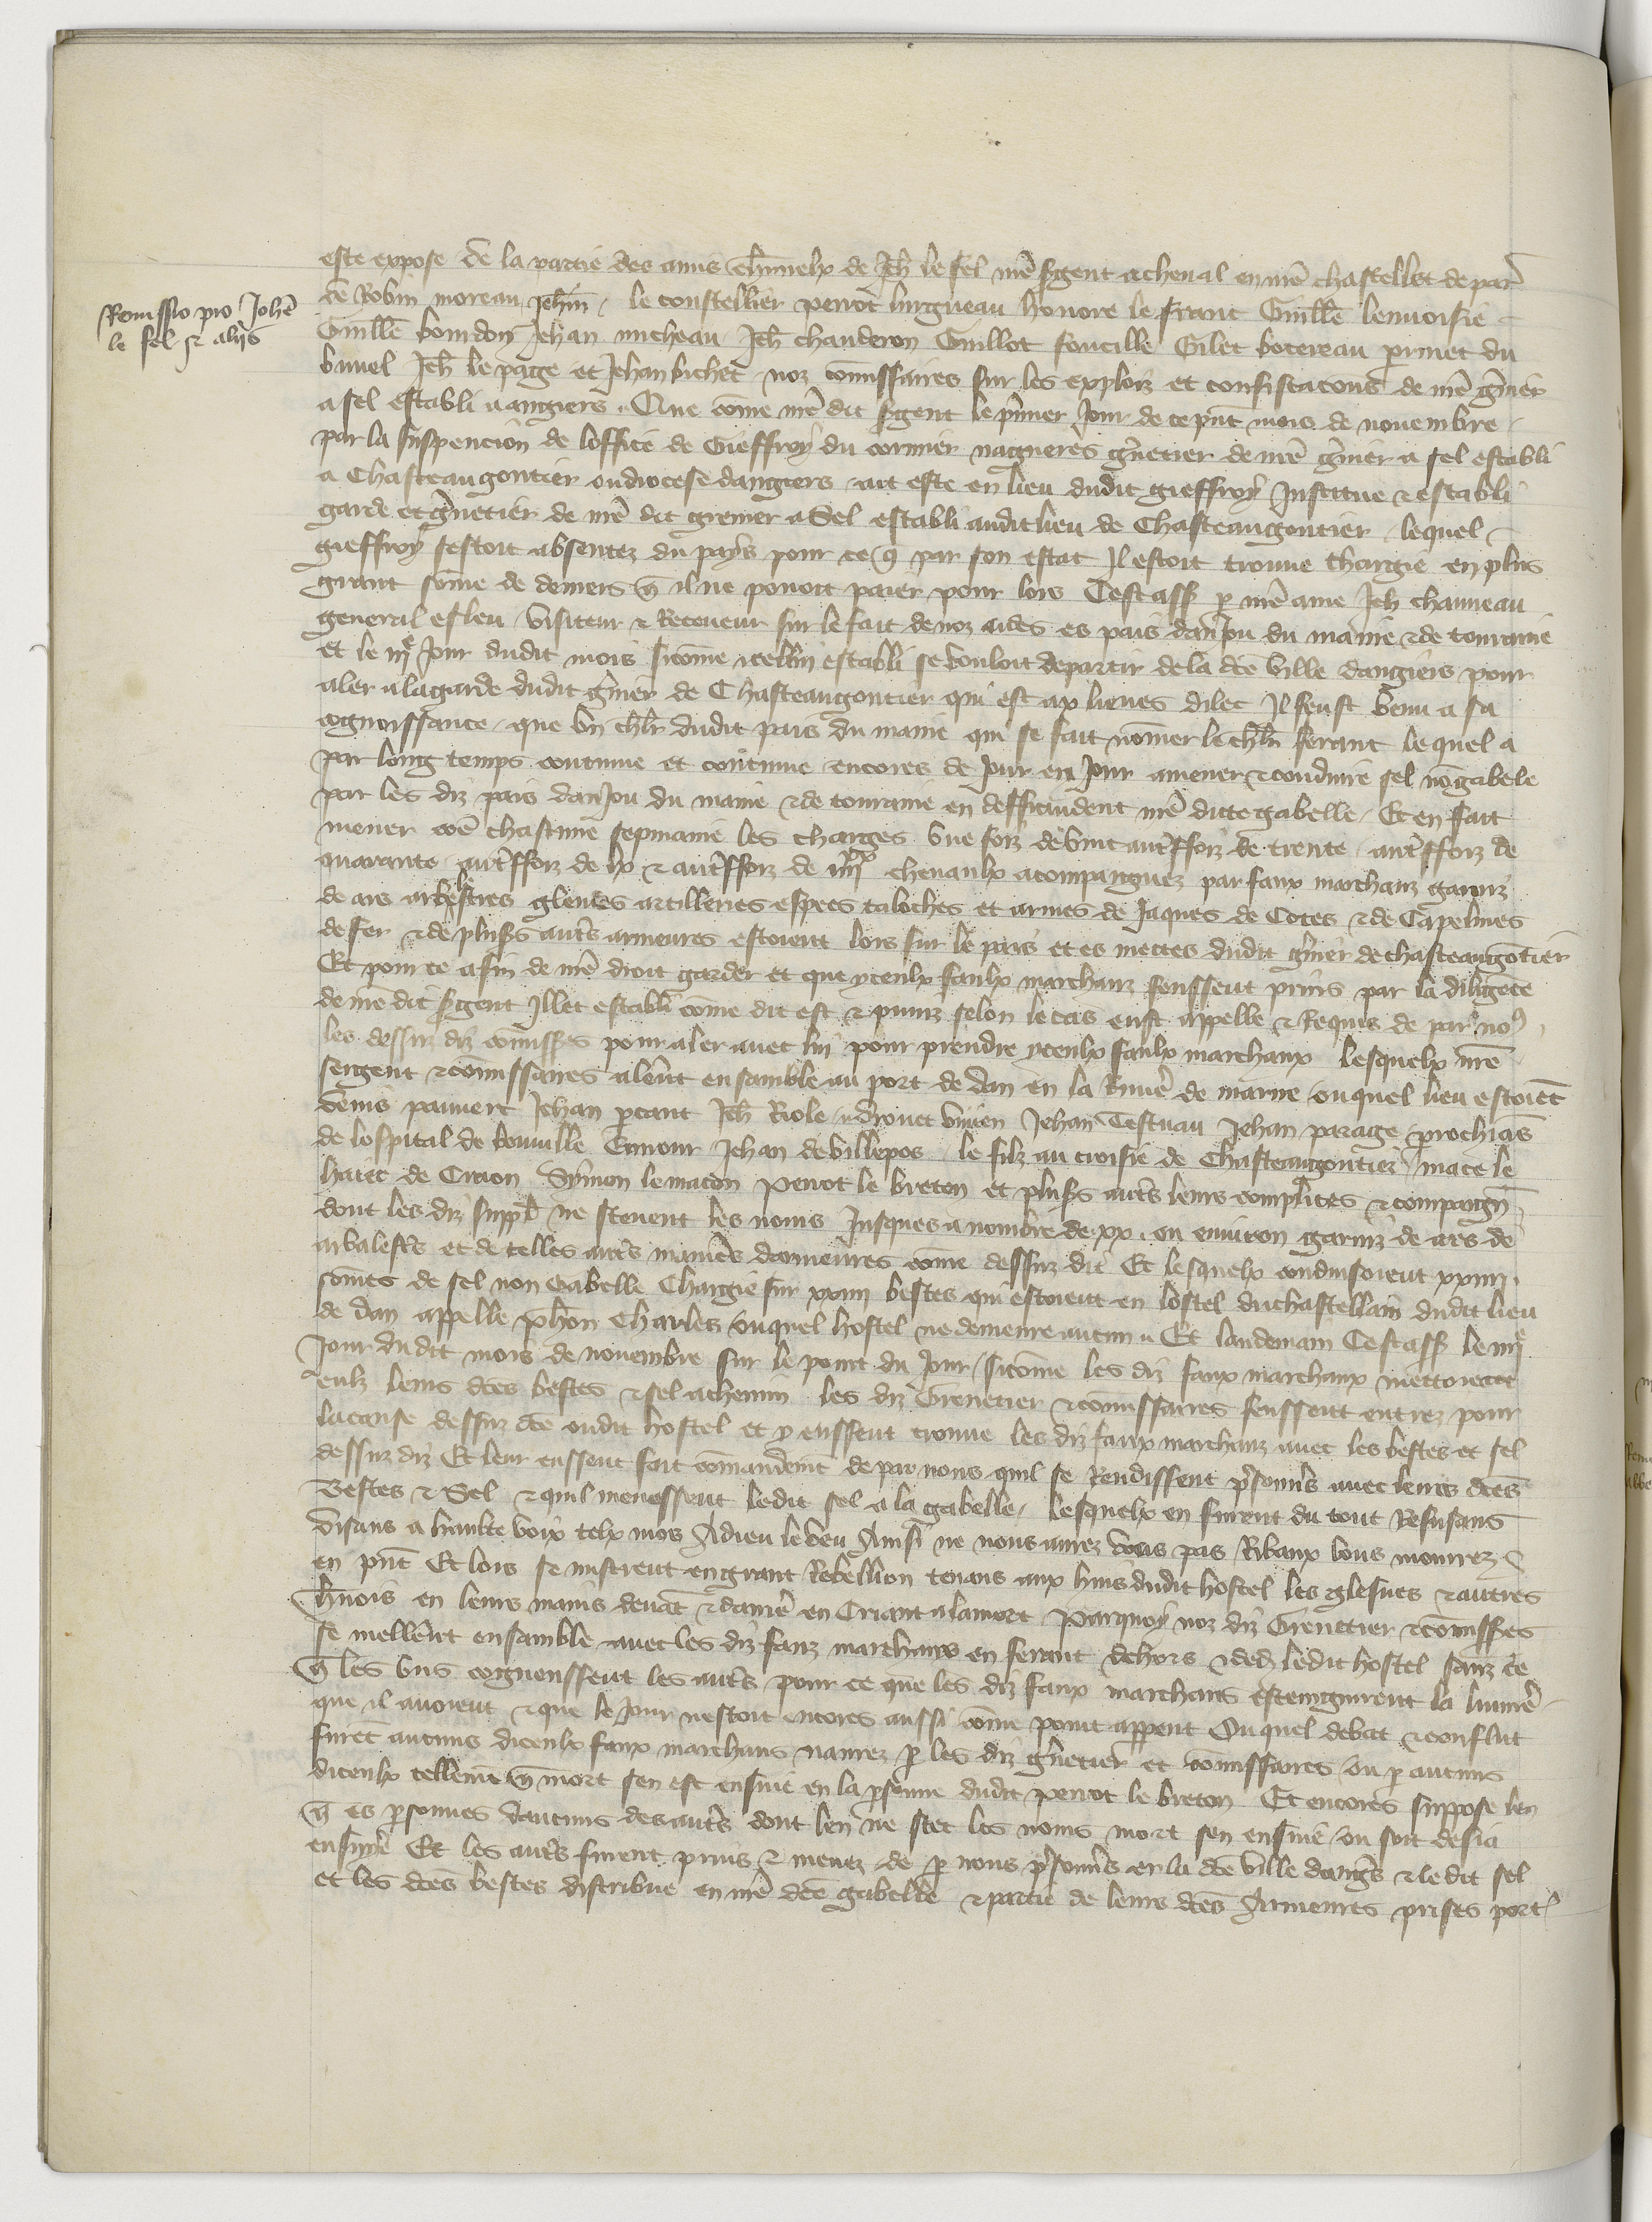 Remissio pro Johē
le fel et alijs
este expose de la partie des amis charnelx de Jeh le fel nrē sgent a cheual en nrē chastellet de par
de Robin moreau Jehan le constellier perrot burgueau honore le frant Guillē lenuoisie
Guillē bourdon Jehan micheau Jeh chauderon Guillot foucille Gilet botereau perinet du
buuel Jeh le page et Jehan bichet noz cōmissaires sur les exploiz et confiscacons de nrē grenier
a sel establi a angiers . Que cōme nrē dit sgent le pmier Jour de ce pnt mois de nouembre
par la suspencion de loffice de Gieffroy du cormier nagueres gnetier de nrē gnier a sel establi
a Chasteaugontier ou diocese dangiers ait este en lieu dudit gieffroy Institue et establi
garde et gnetier de nrē dit grenier a Sel establi audit lieu de Chasteaugontier lequel
gieffroy sestoit absentez du pays pour ce q par son estat Il estoit trouue chargie en plus
grant sōme de deniers q il ne pouoit paier pour lors Cestass p nrē ame Jeh chauueau
general esleu visiteur et Receueur sur le fait de noz aides es pais danjou du maine et de touraine
et le iije Jour dudit mois sicōme icellui establi se vouloit departir de la dcē ville dangiers pour
aler a la garde dudit gnier de Chasteaugontier qui est a x lieues dilec Il feust venu a sa
cognoissance que vn chlr dudit pais du maine qui se fait nōmer le chlr ferant lequel a
par long temps continue et continue encores de Jour en Jour amener et conduire sel nō gabele
par les diz pais danjou du maine et de touraine en deffraudent nrē dicte gabelle Et en fait
mener cōe chascune sepmaine les charges vne foiz de vint autreffoiz de trente autreffoiz de
quarante autreffoiz de lx et autreffoiz de iiijxx cheuaulx acompaignez par faux marchanz garniz
de ars arbestres glesues artilleries espees taloches et armes de Jaques de Cotes et de Capelines
de fer et de pluss autrs armeures estoient lors sur le pais et es mectes dudit gnier de chasteaugōtier
Et pour ce afin de nrē droit garder et que yceulx faulx marchanz feussent prins par la diligēce
de nrē dit sgent Illec establi cōme dit est et puniz selon le cas eust appelle et Requis de par noꝰ
les dessuz diz cōmisses pour aler auec lui pour prendre yceulx faulx marchanx lesquelx nrē
sergent et cōmissaires alerent ensamble au port de dan en la Riuiere de marne ouquel lieu estoiēt
denis pauuert Jehan ptant Jeh Riole drouet viuien Jehan Testuau Jehan parage prochiās
de lospital de bouuille Jehan de villepos le filz au croisie de Chasteaugontier mace le
haiec de Craon Symon lemacon Perrot le breton et pluss autrs leurs complices et compaign
dont les diz suppl ne sceuent les noms Jusques a nombre de xx ou enuiron garniz de ars de
arbalestres et de telles autrs manieres darmeures cōme dessuz dit Et lesquelx conduisoient xxiiij
sōmes de sel non Gabelle Chargie sur xxiiij bestes qui estoient en lostel du chastellain dudit lieu
de dan appelle Charles ouquel hostel ne demeure aucun Et landemain Cestass le iiije
Jour dudit mois de nouembre sur le point du Jour sicōme les diz faux marchanx mettoient
eulx leurs dcēs bestes et sel a chemin les diz Grenetier et cōmissaires feussent entrez pour
la cause dessuz dcē oudit hostel et y eussent trouue les diz faux marchanz auec les bestes et sel
dessuz diz Et leur eussent fait cōmandemēt de par nous quil se Rendissent prisonniers auec leurs dcēs
Bestes et Sel et quil menassent ledit sel a la gabelle lesquelx en furent du tout Refusans
disans a haulte voix telx mos Adieu le veu Ainsi ne nous aurez vous pas Ribaux vous mourrez
en pnt Et lors se mistrent en grant Rebellion tenans aux huis dudit hostel les glesues et autres
hnois en leurs mains deuāt et darriere en Criant a la mort Parquoy noz diz Grenetier et cōmisses
se mellerent ensamble auec les diz faux marchans en ferant dehors et dedens ledit hostel sanz ce
q les vns cogneussent les autrs pour ce que les diz faux marchans estemgnirent la lumiere
que il auoient et que le Jour nestoit encores aussi cōme point apparent Ouquel debat et conflict
furēt aucuns diceulx faux marchans naurez p les diz gnetier et cōmissaires ou p aucuns
diceulx tellemēt q mort sen est ensuie en la psonne dudit perrot le breton Et encores suppose len
q es psonnes daucuns des autrs dont len ne scet les noms mort sen ensuiue ou soit desia
ensuiuie Et les autrs furent prins et menez de p nous prisonniers en la dcē ville dangrs et le dit sel
et les dcēs bestes distribue en nrē dcē gabelle et partie de leurs dcēs Armeures prises port